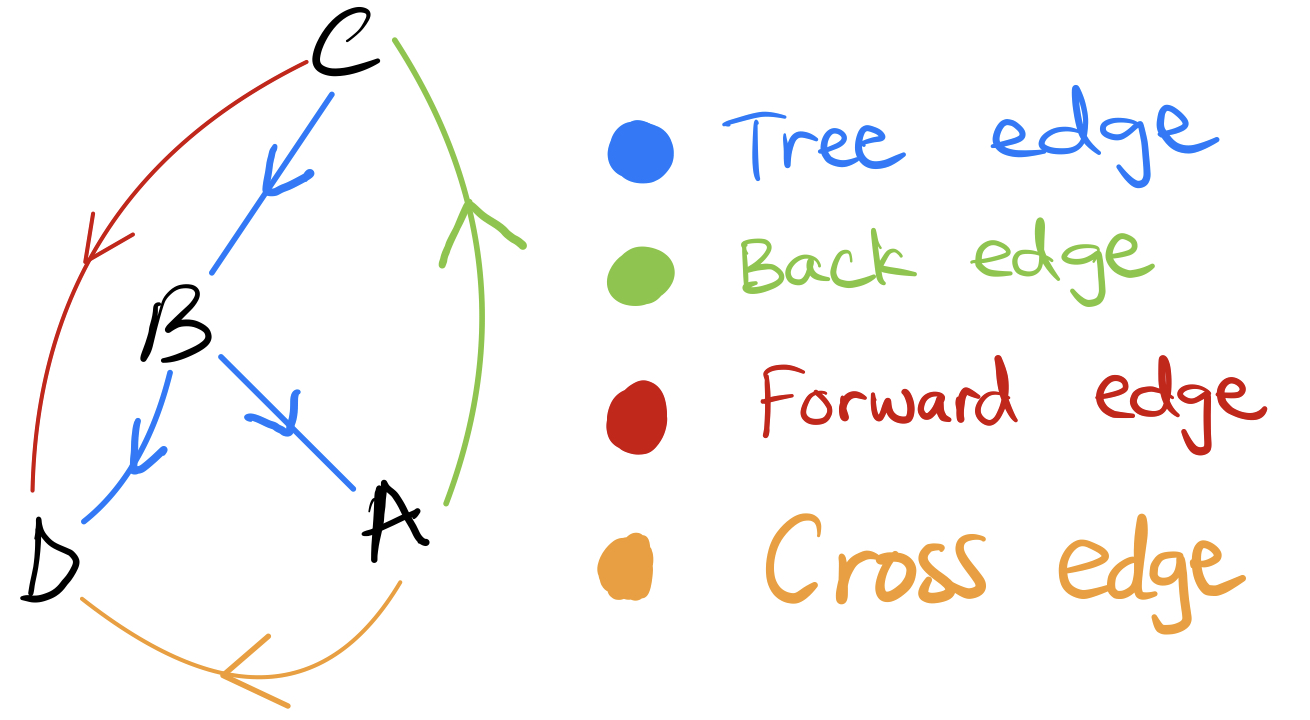 C
Tree edge
Back edge
B
Forward edge
D
A
Cross edge